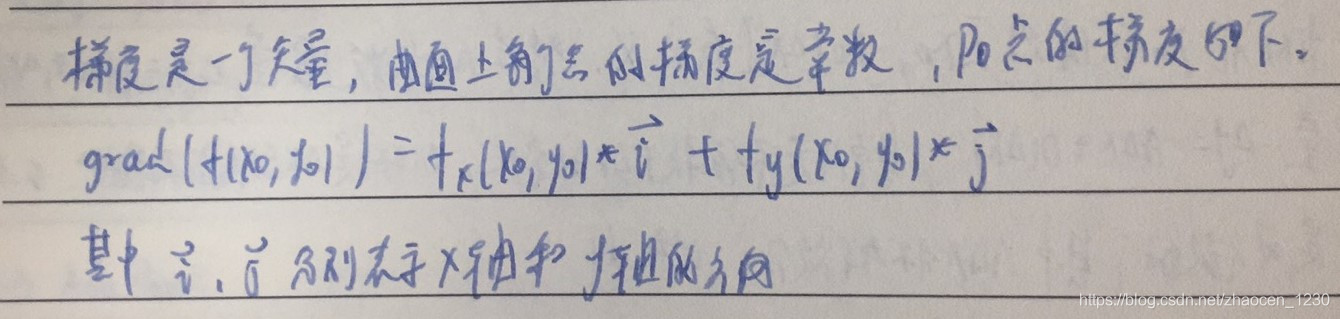 梯度是一个矢量，曲面上每个点的梯度是常数，P0点的梯度如下。
grad(f(x0, y0)) = fx(x0, y0)* i⃗ + fy(x0, y0)* j⃗
其中 i⃗、j⃗ 分别表示x轴和y轴的方向
https://blog.csdn.net/zhaocen_1230